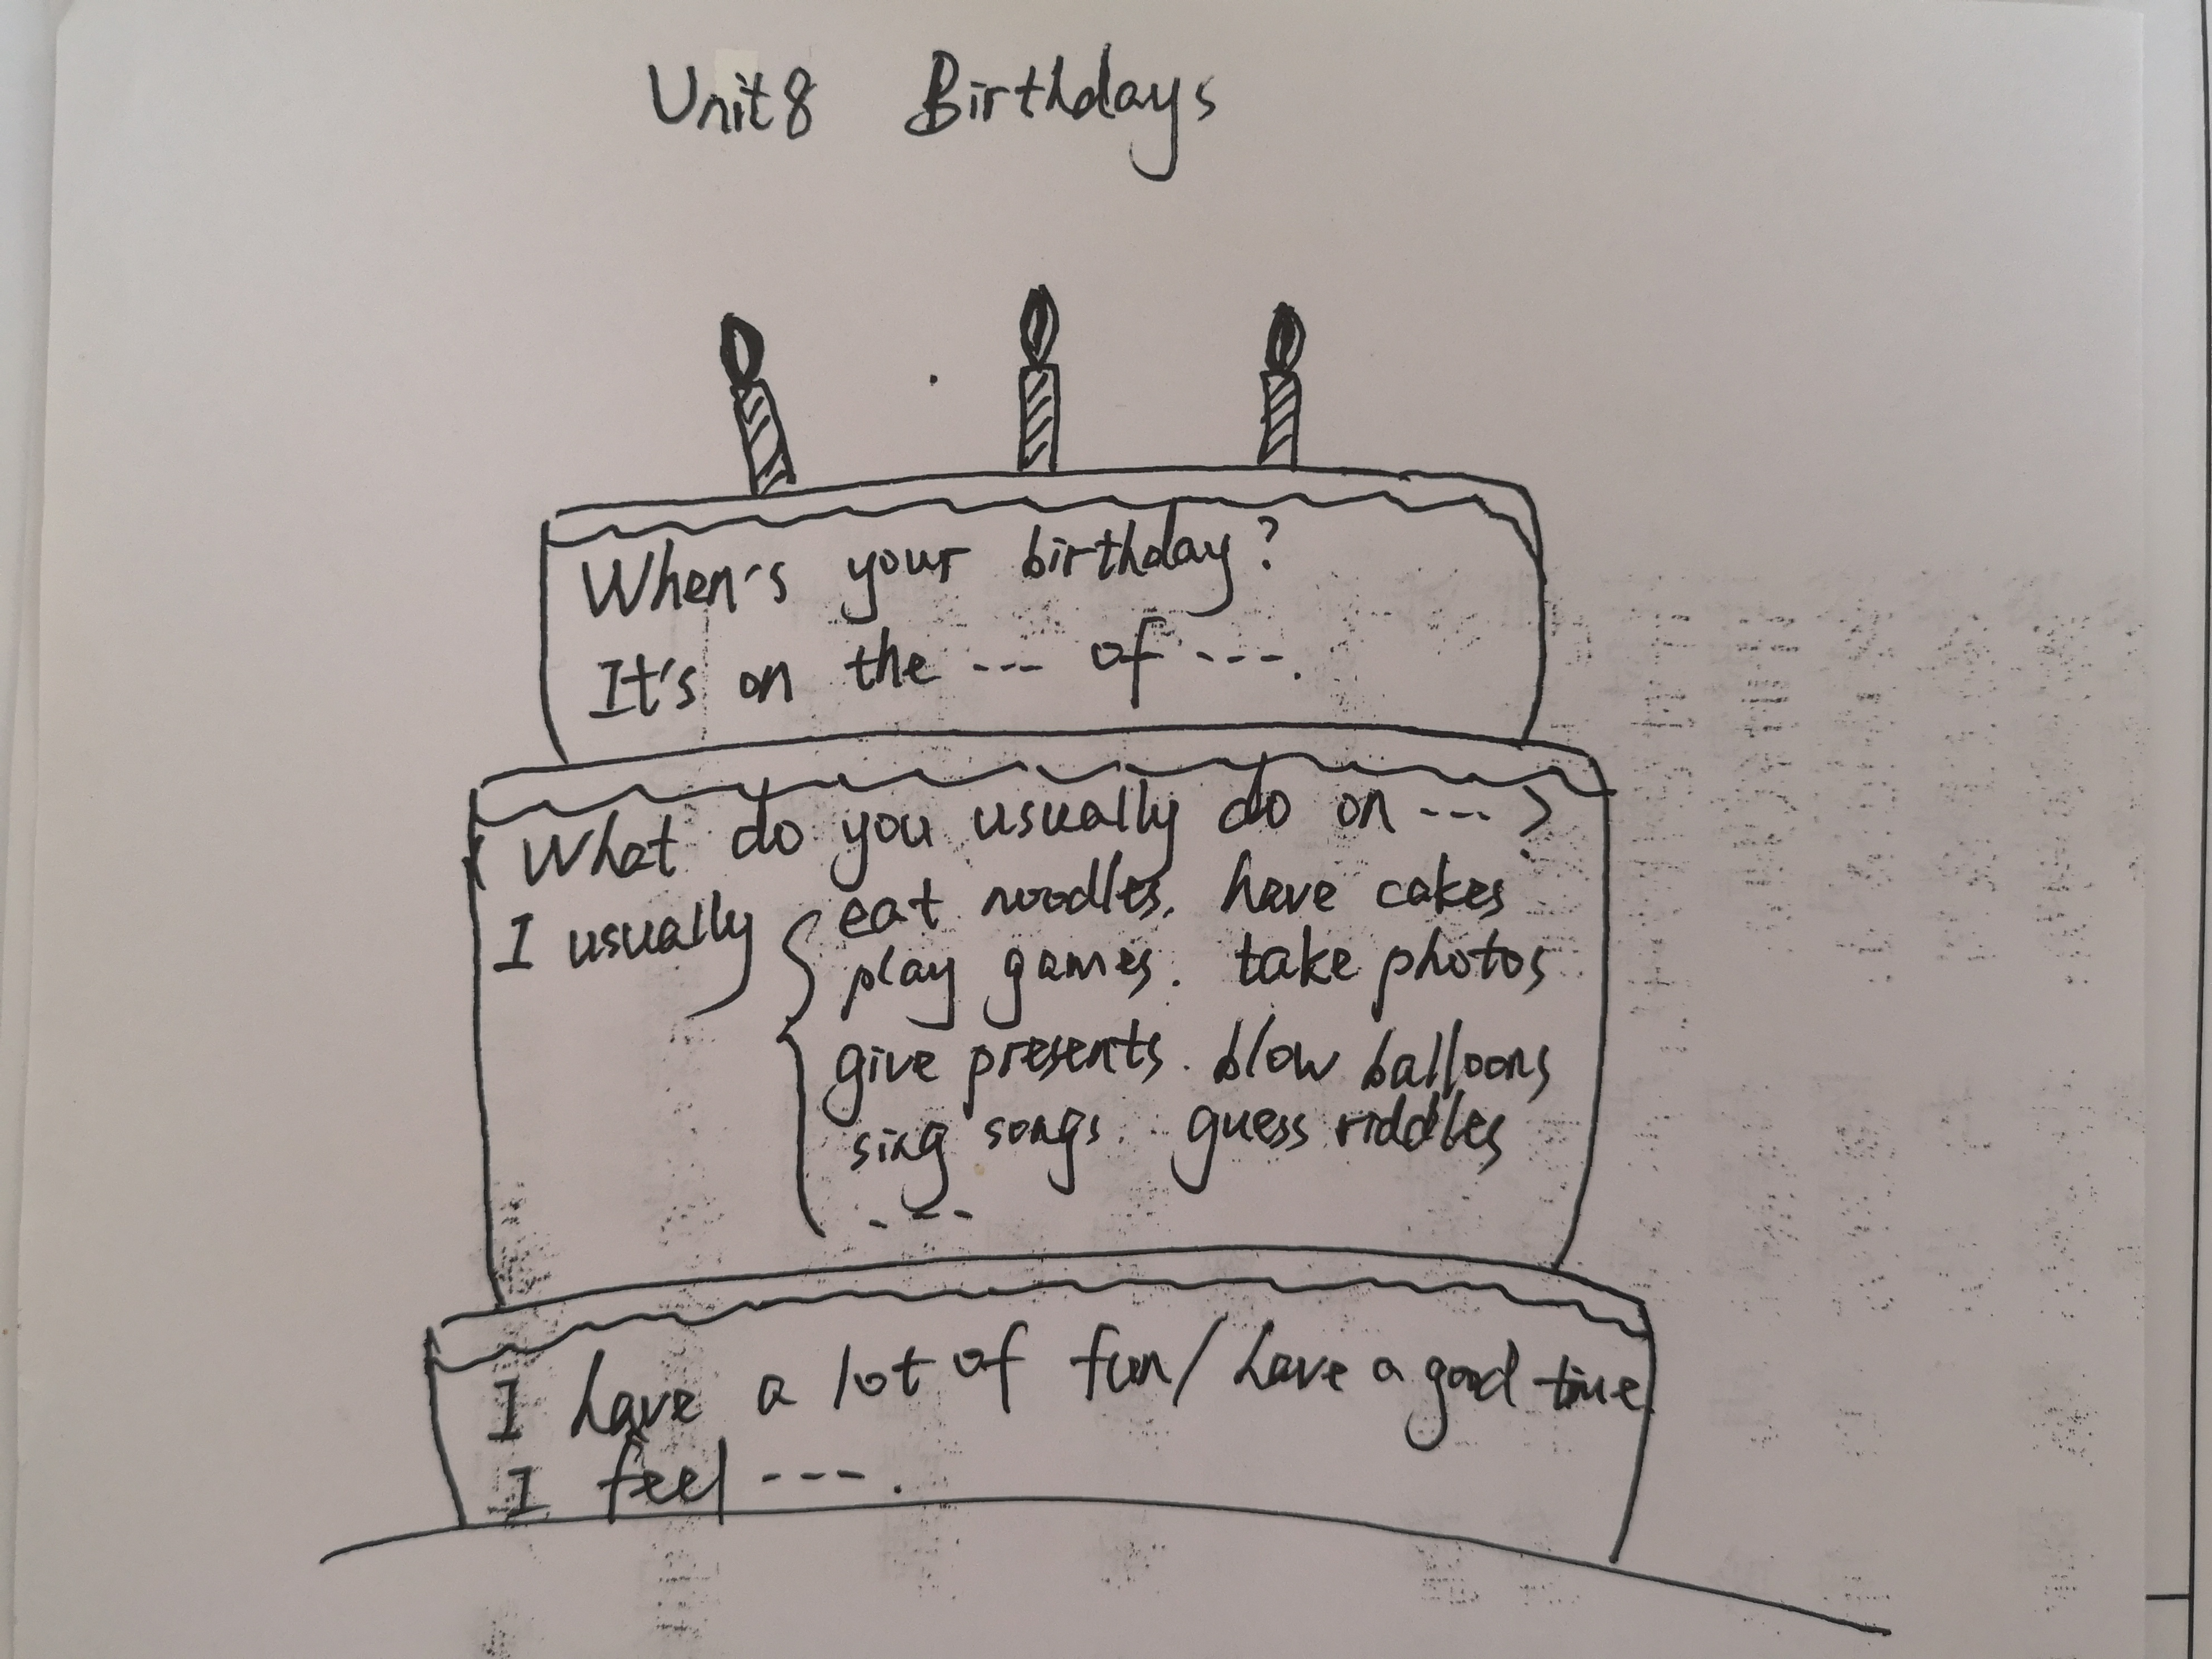 Unit 8 Birthdays
When's your birthday?
It's on the --- of ---.
What do you usually do on --- ?
I usually
eat noodles. have cakes
play games. take photos
give presents. blow balloons
sing songs. guess riddles
---
I have a lot of fun/have a good time.
I feel --- .